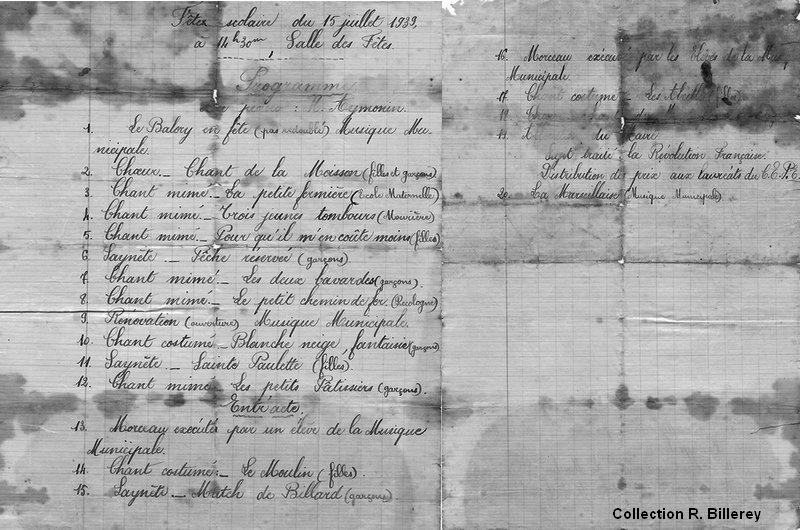 Fêtes scolaire du 15 juillet 1939,
à 14h30m, Salle des Fêtes.
Programme
piano : M. Aymonin.
1. Le Balory en fête (pas redoublé) Musique Mu-
nicipale.
2. Chœur._ Chant de la Moisson (filles et garçons)
3. Chant mimé._ La petite fermière (Ecole Maternelle)
4. Chant mimé._ Trois jeunes tambours (Mouvière)
5. Chant mimé._ Pour qu'il m'en coûte moins (filles)
6. Saynète._ Pêche réservée (garçons)
7. Chant mimé._ Les deux bavardes (garçons).
8. Chant mimé._ Le petit chemin de fer. (Recologne)
9. Rénovation (ouverture) Musique Municipale.
10. Chant costumé_ Blanche neige, fantaisie (garçons)
11. Saynète._ Sainte Paulette (filles).
12. Chant mimé._ Les petits Pâtissiers (garçons).
Entr'acte.
13. Morceau exécuté par un élève de la Musique
Municipale.
14. Chant costumé:_ Le Moulin (filles).
15. Saynète._ Match de Billard (garçons)
16. Morceau exécuté par les Elèves de la Mus.
Municipale.
17. Chant costumé_ Les (filles)
18.
19. du Maire
Sujet traité : la Révolution Française.
Distribution de prix aux lauréats du C.E.P.E.
20. La Marseillaise (Musique Municipale)
Collection R. Billerey